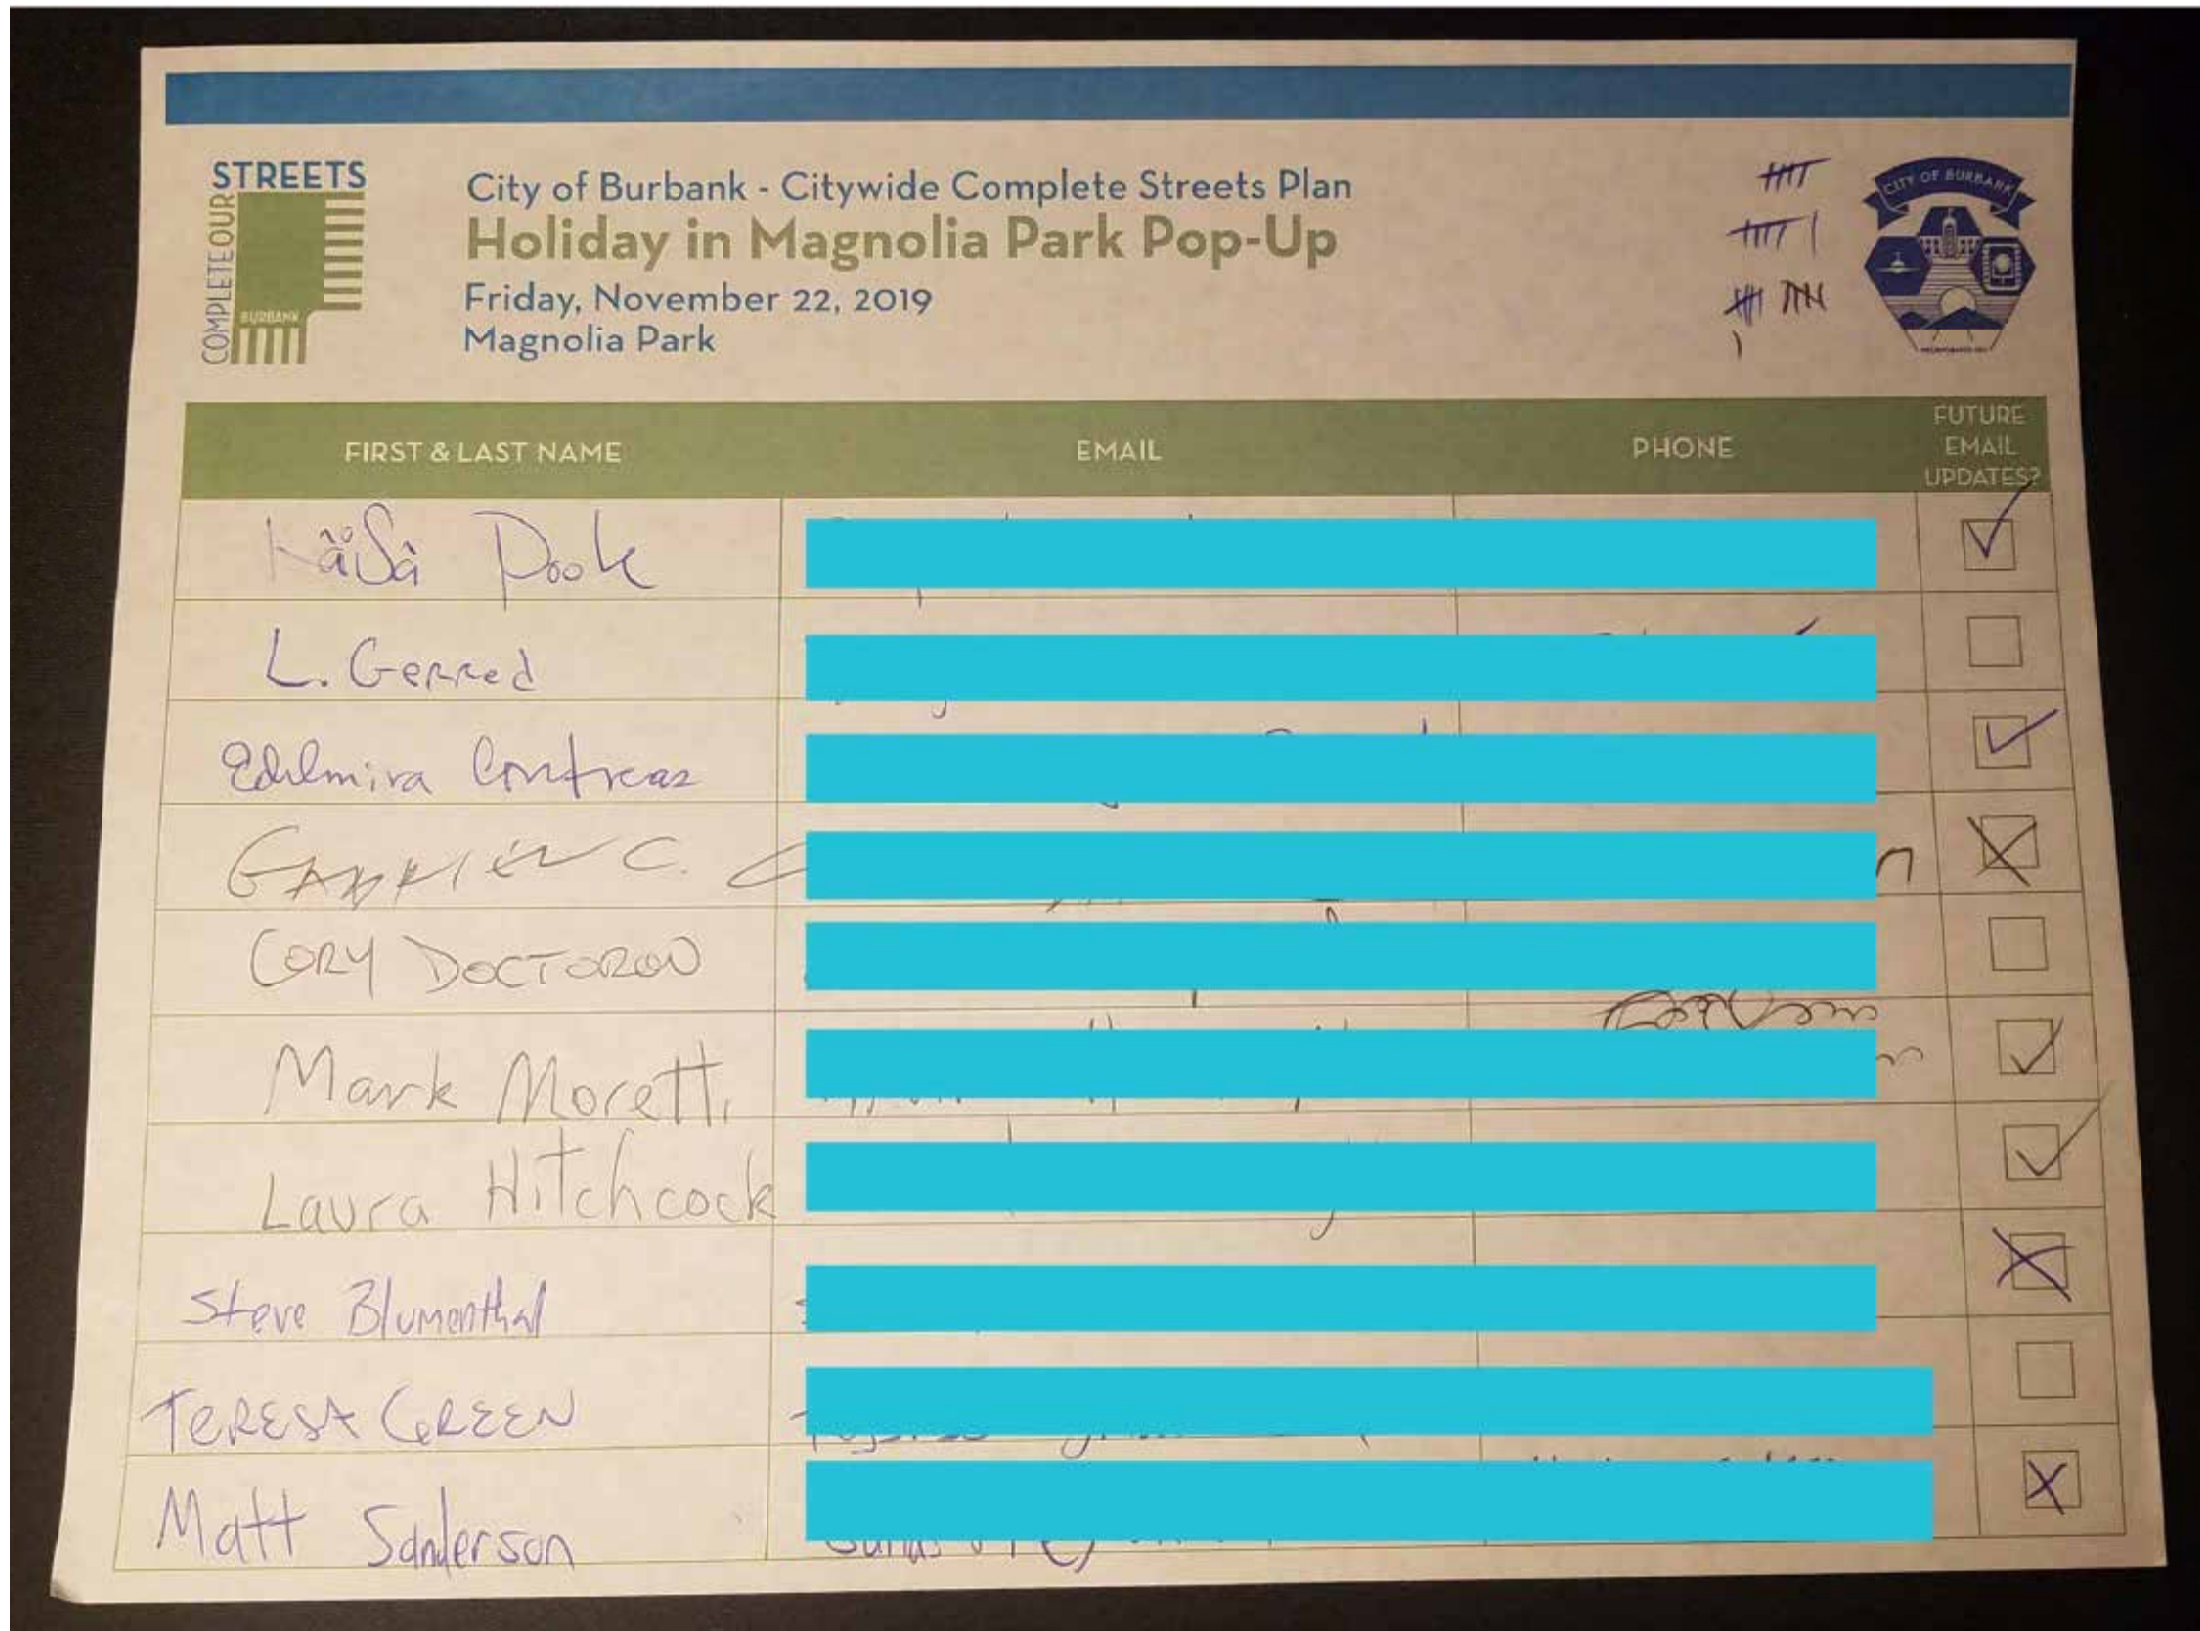 STREETS
COMPLETE OUR
BURBANK
City of Burbank - Citywide Complete Streets Plan
Holiday in Magnolia Park Pop-Up
Friday, November 22, 2019
Magnolia Park
CITY OF BURBANK
FIRST & LAST NAME EMAIL PHONE FUTURE EMAIL UPDATES?
L. Gerred
Edelmira Contreaz
C.
CORY DOCTOROW
Mark Moretti
Laura Hitchcock
Steve Blumenthal
TERESA GREEN
Matt Sanderson